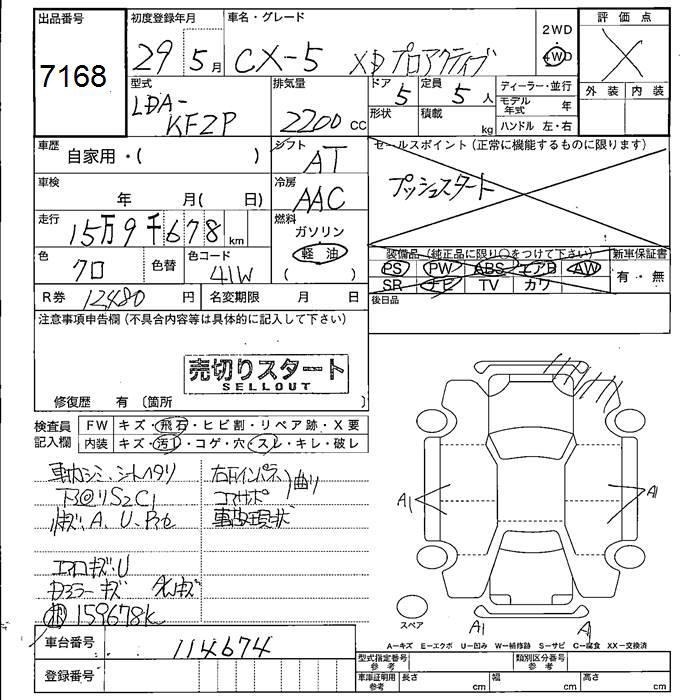 出品番号
7168
初度登録年月
29 5月
車名・グレード
CX-5 XDプロアクティブ
2WD
4WD
評価点
X
外装 内装
型式
LDA-
KFZP
排気量
2200 CC
ドア 5
定員 5人
形状
積載 kg
ディーラー・並行
モデル年式 年
ハンドル 左・右
車歴
自家用・( )
シフト
AT
セールスポイント(正常に機能するものに限ります)
プッシュスタート
車検
年 月( 日)
冷房
AAC
走行
15万9千678km
燃料
ガソリン
軽油
( )
色
クロ
色替
色コード
41W
装備品(純正品に限り○をつけて下さい)
PS PW ABS エアB AW
SR ナビ TV カワ
新車保証書
有・無
R券 12480円
名変期限 月 日
後日品
注意事項申告欄(不具合内容等は具体的に記入して下さい)
売切りスタート
SELLOUT
修復歴 有(箇所 )
検査員記入欄
FW キズ・飛石・ヒビ割・リペア跡・X要
内装 キズ・汚れ・コゲ・穴・スレ・キレ・破レ
シートヘタリ
右Fインパネ
コアサポ
曲り
事故現状
A、U、
エアロキズ、U
ドアミラーキズ
159678k
A1
A1
A1
A
スペア
A-キズ E-エクボ U-凹み W-補修跡 S-サビ C-腐食 XX-交換済
車台番号
114674
登録番号
型式指定番号 参考
類別区分番号 参考
車庫証明用 参考
長さ cm
幅 cm
高さ cm